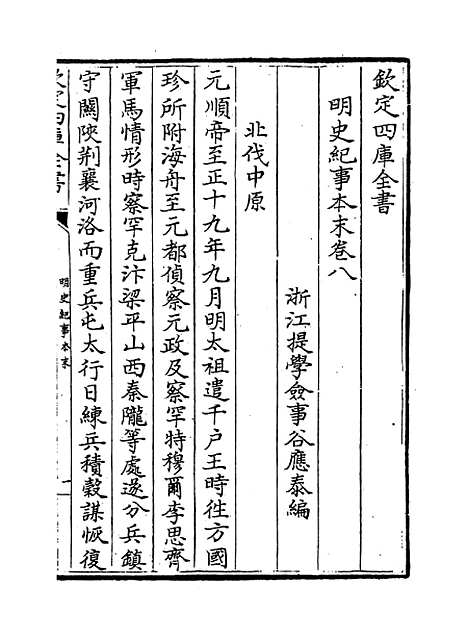 欽定四庫全書
明史紀事本末卷八
浙江提學僉事谷應泰編
北伐中原
元順帝至正十九年九月明太祖遣千户王時徃方國
珍所附海舟至元都偵察元政及察罕特穆爾李思齊
軍馬情形時察罕克汴梁平山西秦隴等處遂分兵鎮
守關陜荆襄河洛而重兵屯太行日練兵積穀謀恢復
欽定四庫全書
明史紀事本末
一